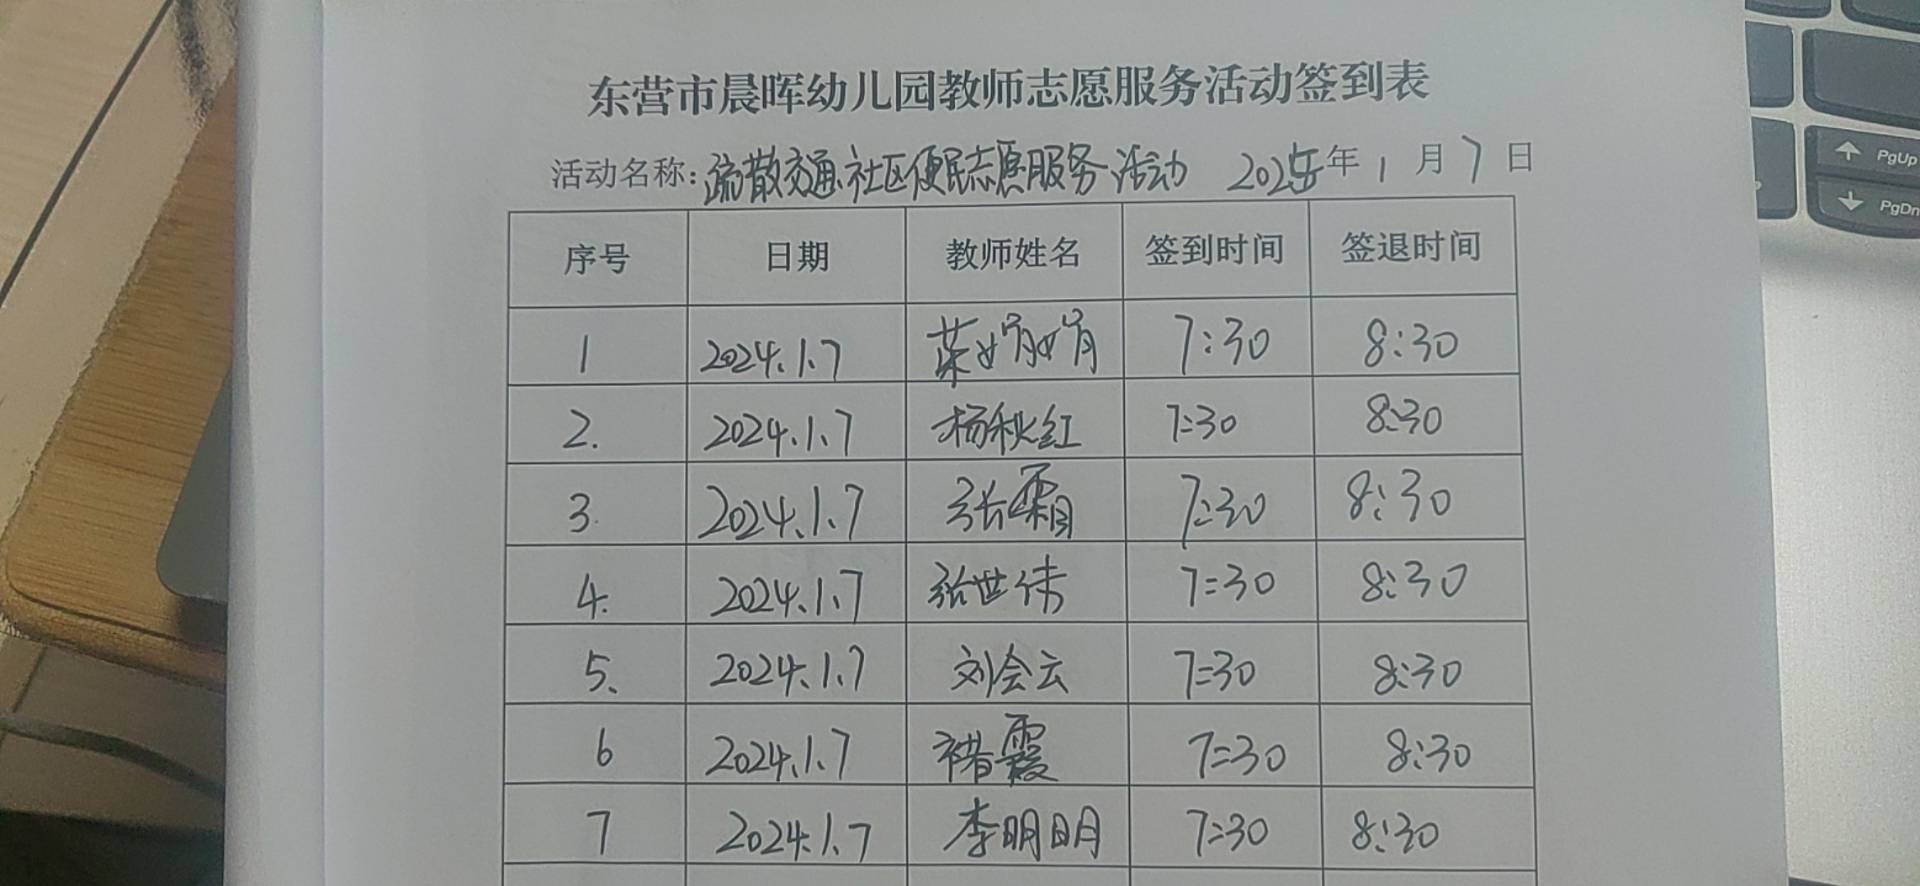 东营市晨晖幼儿园教师志愿服务活动签到表
活动名称: 疏散交通 社区便民志愿服务活动 2025年 1 月 7 日
序号 日期 教师姓名 签到时间 签退时间
1 2024.1.7 荣娟娟 7:30 8:30
2. 2024.1.7 杨秋红 7:30 8:30
3. 2024.1.7 张霜 7:30 8:30
4. 2024.1.7 张世伟 7:30 8:30
5、 2024.1.7 刘会云 7:30 8:30
6 2024.1.7 褚霞 7:30 8:30
7 2024.1.7 李明明 7:30 8:30
PgUp
PgDn